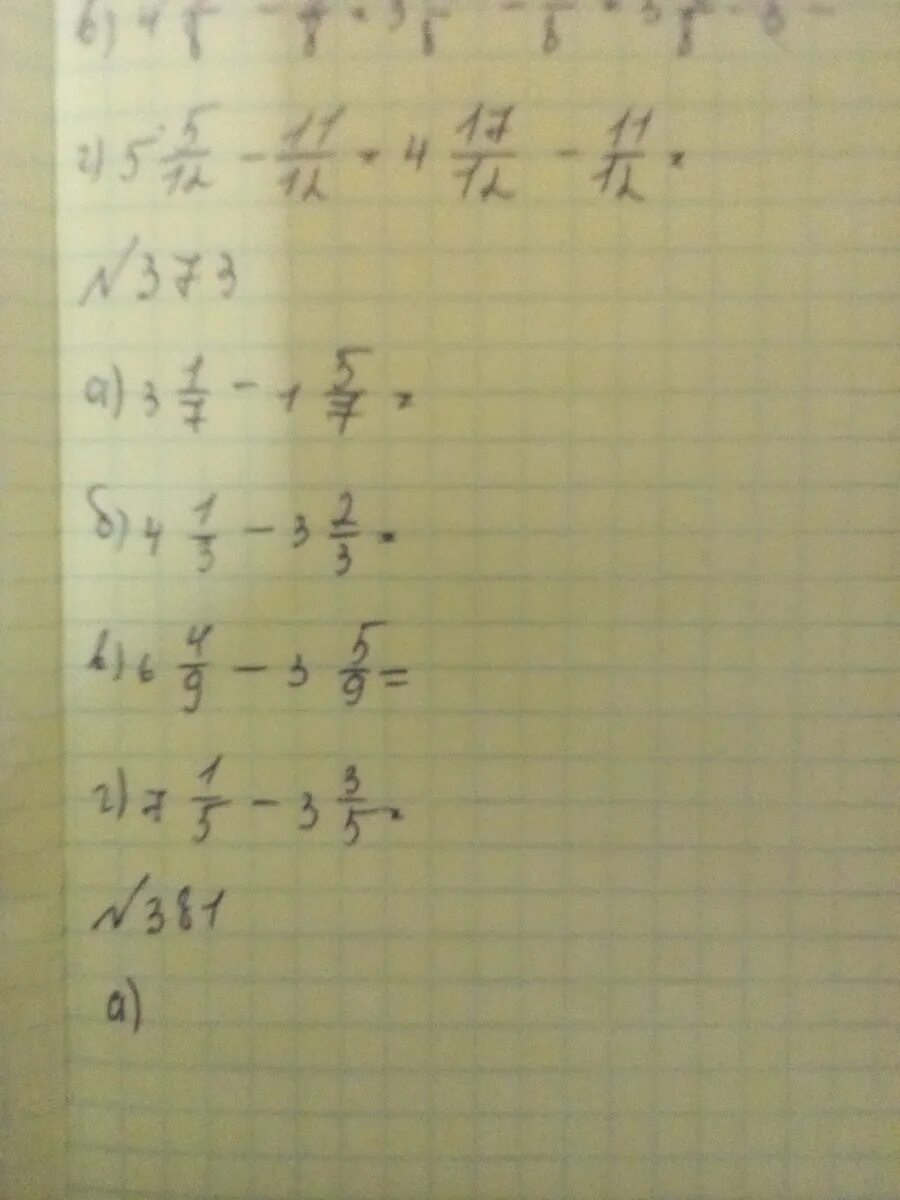 г) 5 5/12 - 11/12 = 4 17/12 - 11/12 =
№373
а) 3 1/7 - 1 5/7 =
б) 4 1/3 - 3 2/3 =
в) 6 4/9 - 3 5/9 =
г) 7 1/5 - 3 3/5 =
№381
а)